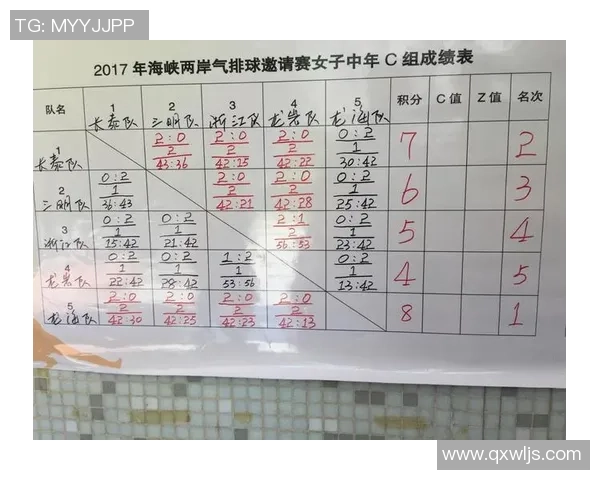 TG: MYYJJPP
2017 年海峡两岸气排球邀请赛女子中年 C 组成绩表
队名 1 长泰队 2 三明队 3 浙江队 4 龙岩队 5 龙海队 积分 C 值 Z 值 名次
1 长泰队 2:0 2 43:36 2:0 2 42:15 2:0 2 42:22 0:2 1 30:42 7 2
2 三明队 0:2 1 36:43 2:0 2 42:21 2:0 2 42:28 0:2 1 25:42 6 3
3 浙江队 0:2 1 15:42 0:2 1 21:42 2:1 2 56:53 0:2 1 23:42 5 4
4 龙岩队 0:2 1 22:42 0:2 1 28:42 1:2 1 53:56 0:2 1 13:42 4 5
5 龙海队 2:0 2 42:30 2:0 2 42:25 2:0 2 42:23 2:0 2 42:13 8 1
www.qxwljs.com